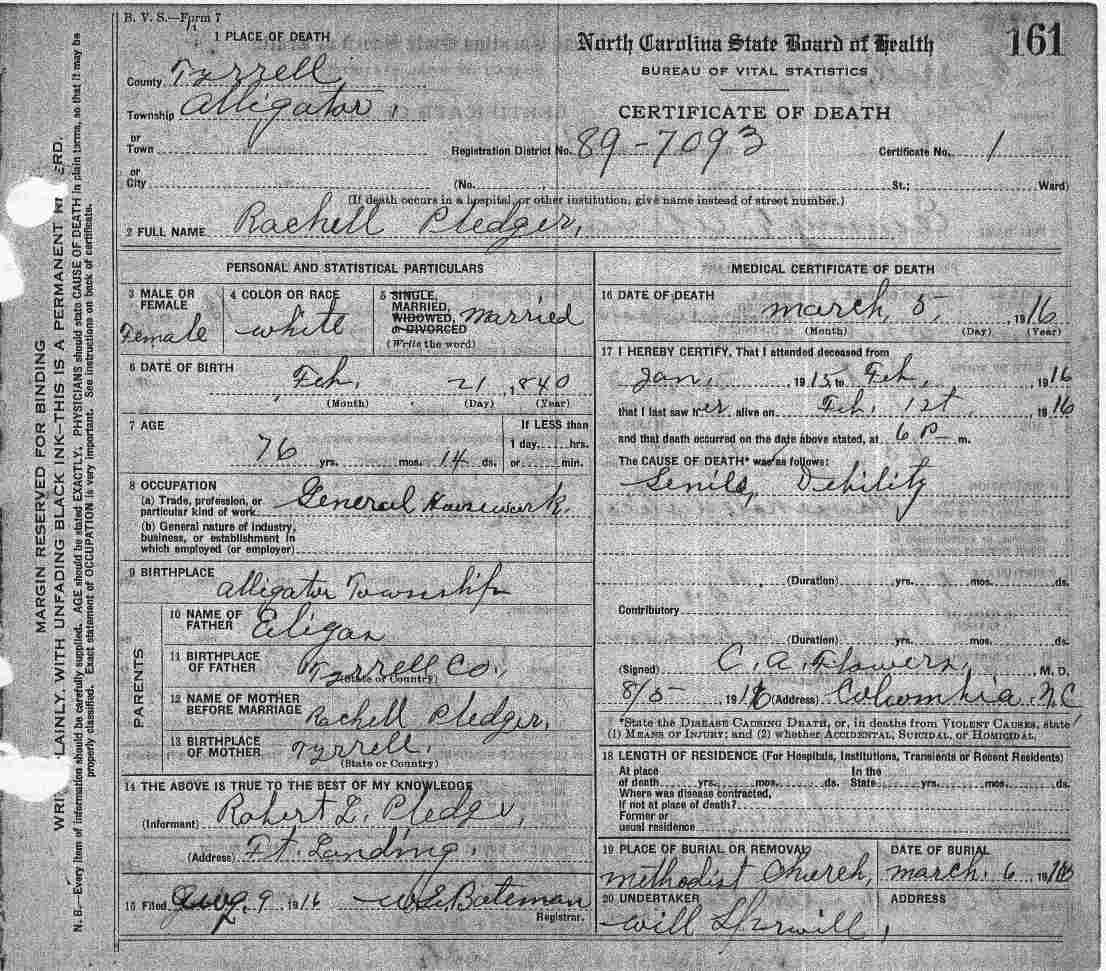 B. V. S.—Form 7
1 PLACE OF DEATH
County Tyrrell
Township Alligator
or
Town
or
City
North Carolina State Board of Health
161
BUREAU OF VITAL STATISTICS
CERTIFICATE OF DEATH
Registration District No. 89-7093 Certificate No. 1
(No. St.; Ward)
(If death occurs in a hospital, or other institution, give name instead of street number.)
2 FULL NAME Rachell Pledger,
PERSONAL AND STATISTICAL PARTICULARS
3 MALE OR FEMALE Female
4 COLOR OR RACE white
5 SINGLE, MARRIED, WIDOWED, or DIVORCED married
(Write the word)
6 DATE OF BIRTH Feb. 21, 1840
(Month) (Day) (Year)
7 AGE
76 yrs. mos. 14 ds.
If LESS than
1 day, hrs.
or min.
8 OCCUPATION
(a) Trade, profession, or
particular kind of work General Housework.
(b) General nature of industry,
business, or establishment in
which employed (or employer)
9 BIRTHPLACE Alligator Township
PARENTS
10 NAME OF
FATHER
11 BIRTHPLACE
OF FATHER Tyrrell Co,
(State or Country)
12 NAME OF MOTHER
BEFORE MARRIAGE Rachell Pledger,
13 BIRTHPLACE
OF MOTHER Tyrrell.
(State or Country)
14 THE ABOVE IS TRUE TO THE BEST OF MY KNOWLEDGE
(Informant) Robert L. Pledger
(Address) Ft. Landing.
15 Filed Aug. 9 1916 W.S. Bateman
Registrar.
MEDICAL CERTIFICATE OF DEATH
16 DATE OF DEATH
march, 5, 1916
(Month) (Day) (Year)
17 I HEREBY CERTIFY, That I attended deceased from
Jan, 1915, to Feb, 1916
that I last saw her alive on Feb. 1st, 1916
and that death occurred on the date above stated, at 6 P m.
The CAUSE OF DEATH* was as follows:
Senile, Debility
(Duration) yrs. mos. ds.
Contributory
(Duration) yrs. mos. ds.
(Signed) C. A. Flowers, M. D.
8/5 1916 (Address) Columbia N.C
*State the DISEASE CAUSING DEATH, or, in deaths from VIOLENT CAUSES, state
(1) MEANS OF INJURY; and (2) whether ACCIDENTAL, SUICIDAL, OR HOMICIDAL.
18 LENGTH OF RESIDENCE (For Hospitals, Institutions, Transients or Recent Residents)
At place In the
of death yrs. mos. ds. State yrs. mos. ds.
Where was disease contracted,
If not at place of death?
Former or
usual residence
19 PLACE OF BURIAL OR REMOVAL
methodist Church,
DATE OF BURIAL
march. 6 191
20 UNDERTAKER
Will
ADDRESS
MARGIN RESERVED FOR BINDING
LAINLY, WITH UNFADING BLACK INK—THIS IS A PERMANENT
N. B.—Every item of information should be carefully supplied. AGE should be stated EXACTLY. PHYSICIANS should state CAUSE OF DEATH in plain terms, so that it may be
properly classified. Exact statement of OCCUPATION is very important. See instructions on back of certificate.